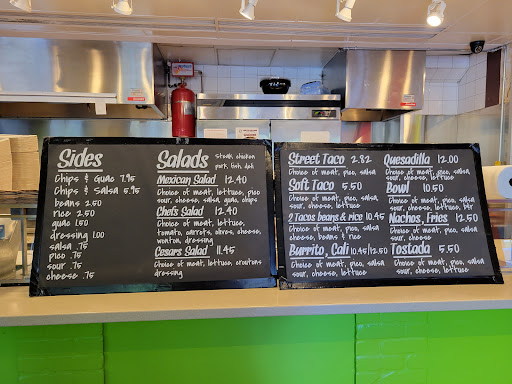 Sides
Chips & Guac 7.95
Chips & Salsa 5.95
beans 2.50
rice 2.50
guac 1.50
dressing 1.00
salsa .75
pico .75
sour .75
cheese .75
Salads steak, chicken
pork, fish, dak
Mexican Salad 12.40
Choice of meat, lettuce, pico
sour, cheese, salsa, guac, chips
Chefs Salad 12.40
Choice of meat, lettuce,
tomato, carrots, olives, cheese,
wonton, dressing
Cesars Salad 11.45
Choice of meat, lettuce, croutons
dressing
Street Taco 2.82
Choice of meat, pico, salsa
Soft Taco 5.50
Choice of meat, pico, salsa
sour, cheese, lettuce
2 Tacos beans & rice 10.45
Choice of meat, pico, salsa
cheese, beans & rice
Burrito, Cali 10.45/12.50
Choice of meat, pico, salsa
sour, cheese, lettuce
Quesadilla 12.00
Choice of meat, pico, salsa,
sour, cheese, lettuce
Bowl 10.50
Choice of meat, pico, salsa
sour, cheese, lettuce, b&r
Nachos, Fries 12.50
Choice of meat, pico, salsa
sour, cheese
Tostada 5.50
Choice of meat, pico, salsa
sour, cheese, lettuce